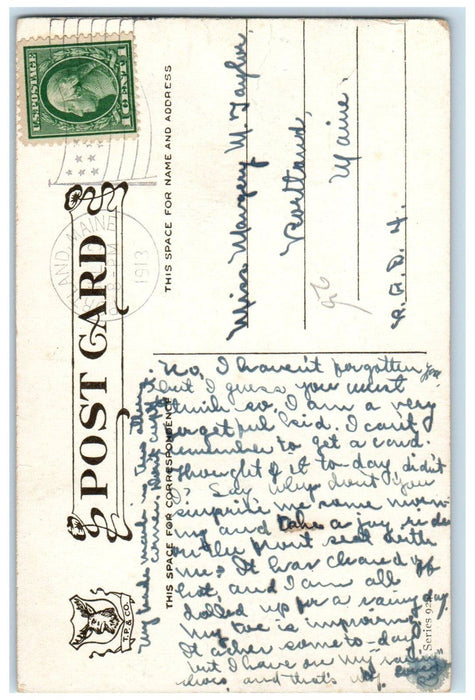 U.S. POSTAGE
1 CENT 1
LAND, MAINE
1913
POST CARD
THIS SPACE FOR NAME AND ADDRESS
Miss Margery M. Taylor.
Portland,
Maine.
R.F.D. 4.
96
THIS SPACE FOR CORRESPONDENCE
No, I haven't forgotten you
but I guess you must
think so. I am a very
forgetful kid. I can't
remember to get a card.
thought of it to-day, didn't
I? Say why don't you
surprise me some morn-
ing and take a joy ride
in the front seat with
me? It has cleared off
hot, and I am all
dolled up for a rainy day.
My toe is improving
It aches some to-day
but I have on my
shoes and that's why.
T.P. & CO.
Series 92